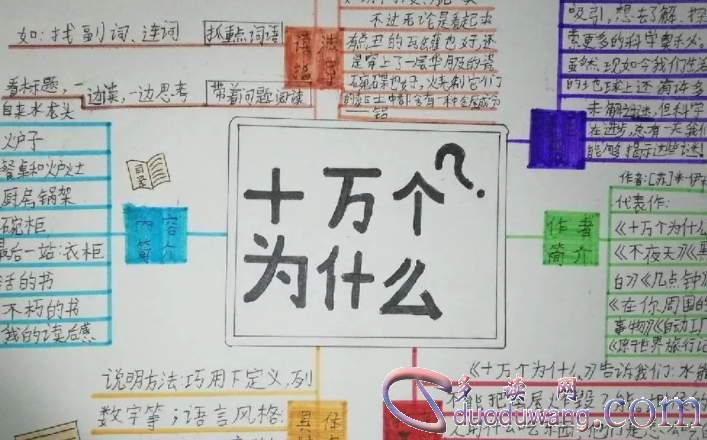 如：找副词、连词
抓重点词语
看标题，一边读，一边思考
带着问题阅读
不过无论是看起来
有点丑的瓦罐也好，还
是穿上了一层华丽的瓷
碗瓷碟也好，烧制它们
吸引，想去了解、探
索更多的科学奥秘
虽然现如今我们生活
的地球上还有许多
未解之谜，但科学
在进步，总有一天我们
能够揭示这些谜！
自来水龙头
火炉子
餐桌和炉灶
厨房锅架
碗柜
最后一站：衣柜
活的书
不朽的书
我的读后感
目录
内容
简介
十万个？
为什么
作者
简介
作者：[苏]米·伊
代表作：
《十万个为什么
《不夜天》《黑
白》《几点钟》
《在你周围的
事物》《自动工厂
说明方法：巧用下定义，列
数字等；语言风格：
《十万个为什么》告诉我们：水能
多读网
duoduwang.com